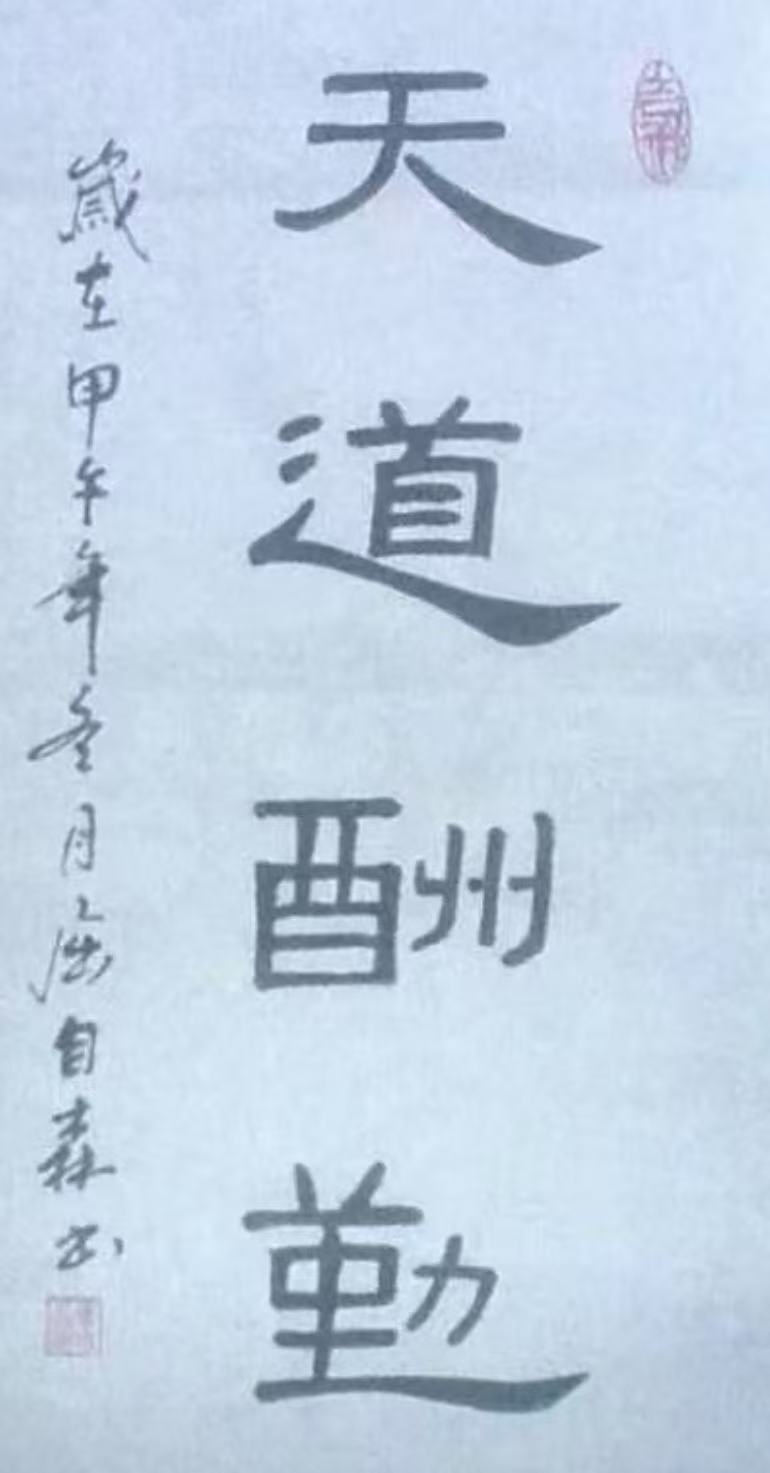 天道酬勤
岁在甲午年冬月屈自森书